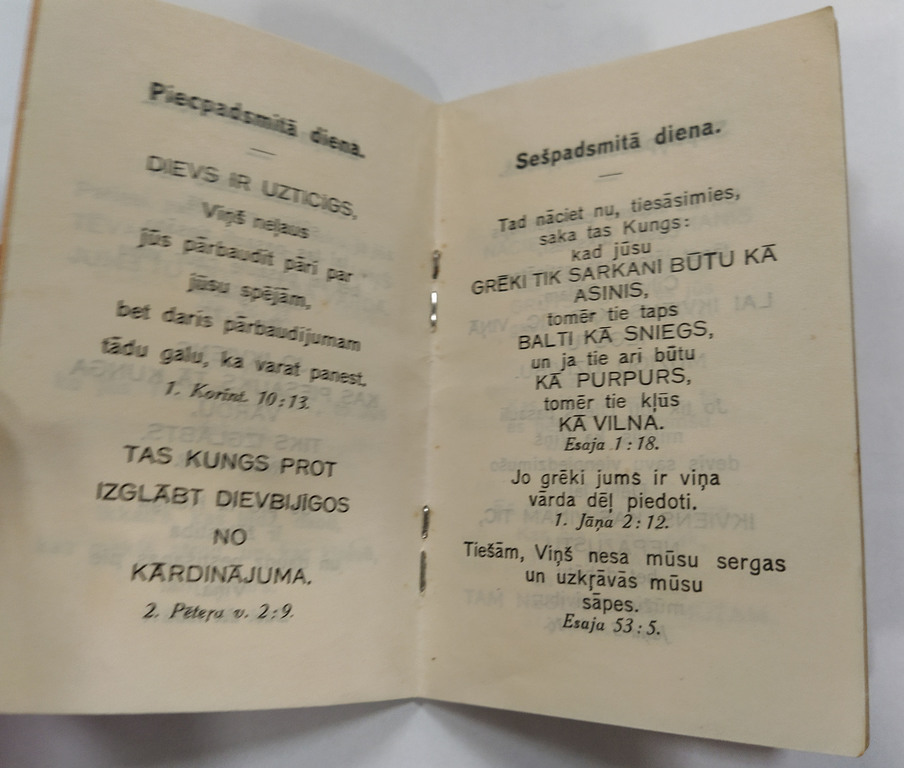 Piecpadsmitā diena.
DIEVS IR UZTICĪGS,
Viņš neļaus
jūs pārbaudīt pāri par
jūsu spējām,
bet darīs pārbaudījumam
tādu galu, ka varat panest.
1. Korint. 10:13.
TAS KUNGS PROT
IZGLĀBT DIEVBIJĪGOS
NO
KĀRDINĀJUMA.
2. Pēteŗa v. 2:9.
Sešpadsmitā diena.
Tad nāciet nu, tiesāsimies,
saka tas Kungs:
kad jūsu
GRĒKI TIK SARKANI BŪTU KĀ
ASINIS,
tomēr tie taps
BALTI KĀ SNIEGS,
un ja tie arī būtu
KĀ PURPURS,
tomēr tie kļūs
KĀ VILNA.
Esaja 1:18.
Jo grēki jums ir viņa
vārda dēļ piedoti.
1. Jāņa 2:12.
Tiešām, Viņš nesa mūsu sergas
un uzkŗāvās mūsu
sāpes.
Esaja 53:5.